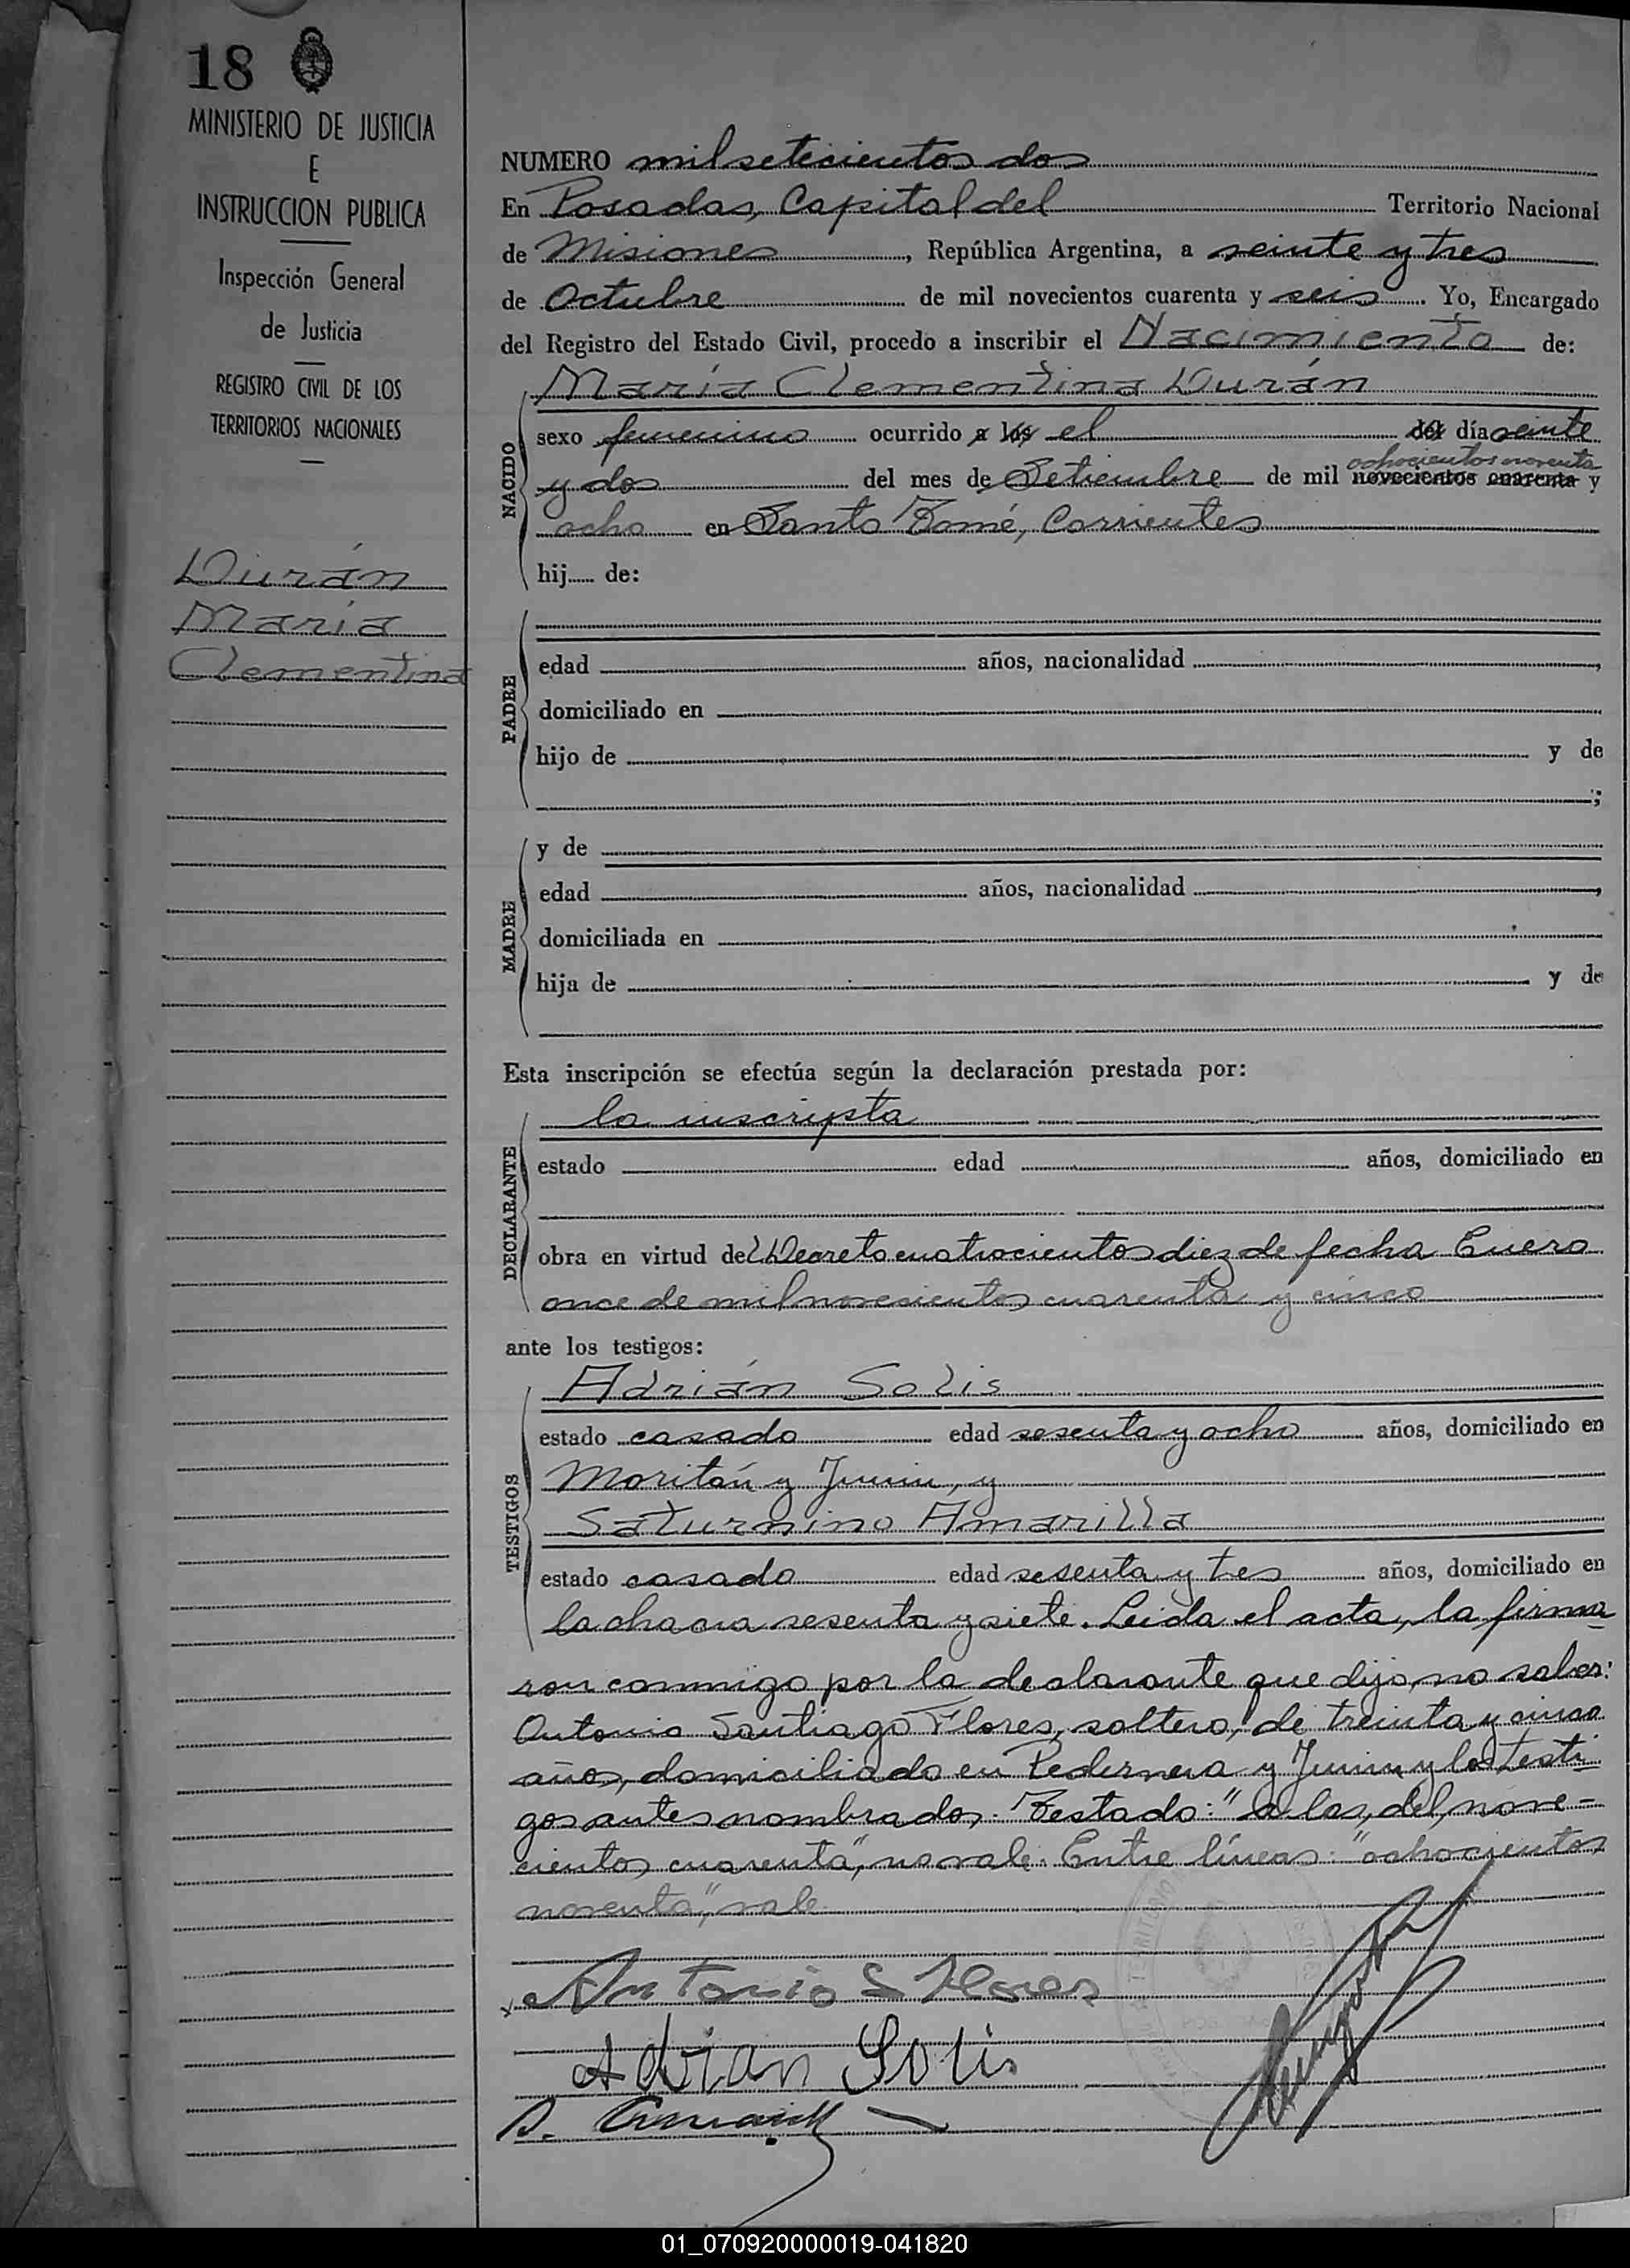 18
MINISTERIO DE JUSTICIA
E
INSTRUCCION PUBLICA
Inspección General
de Justicia
REGISTRO CIVIL DE LOS
TERRITORIOS NACIONALES
Durán
María
Clementina
NUMERO mil setecientos dos
En Posadas, Capital del Territorio Nacional
de Misiones, República Argentina, a veinte y tres
de Octubre de mil novecientos cuarenta y seis. Yo, Encargado
del Registro del Estado Civil, procedo a inscribir el Nacimiento de:
NACIDO
María Clementina Durán
sexo femenino ocurrido a las el del día veinte
ochocientos noventa
y dos del mes de Setiembre de mil novecientos cuarenta y
ocho en Santo Tomé, Corrientes
hij de:
PADRE
edad años, nacionalidad ,
domiciliado en
hijo de y de
;
MADRE
y de
edad años, nacionalidad ,
domiciliada en
hija de y de
Esta inscripción se efectúa según la declaración prestada por:
DECLARANTE
la inscripta
estado edad años, domiciliado en
obra en virtud del Decreto cuatrocientos diez de fecha Enero
once de mil novecientos cuarenta y cinco
ante los testigos:
TESTIGOS
Adrián Solis
estado casado edad sesenta y ocho años, domiciliado en
Moritán y Junin, y
Saturnino Amarilla
estado casado edad sesenta y tres años, domiciliado en
la chacra sesenta y siete. Leida el acta, la firma
ron conmigo por la declarante que dijo no saber:
Antonio Santiago Flores, soltero, de treinta y cinco
años, domiciliado en Pedernera y Junin y los testi
gos antes nombrados. Testado: "a las, del, nove-
cientos cuarenta", no vale. Entre líneas: "ochocientos
noventa", vale.
Antonio S Flores
Adrian Solis
S. Amarilla
01_070920000019-041820